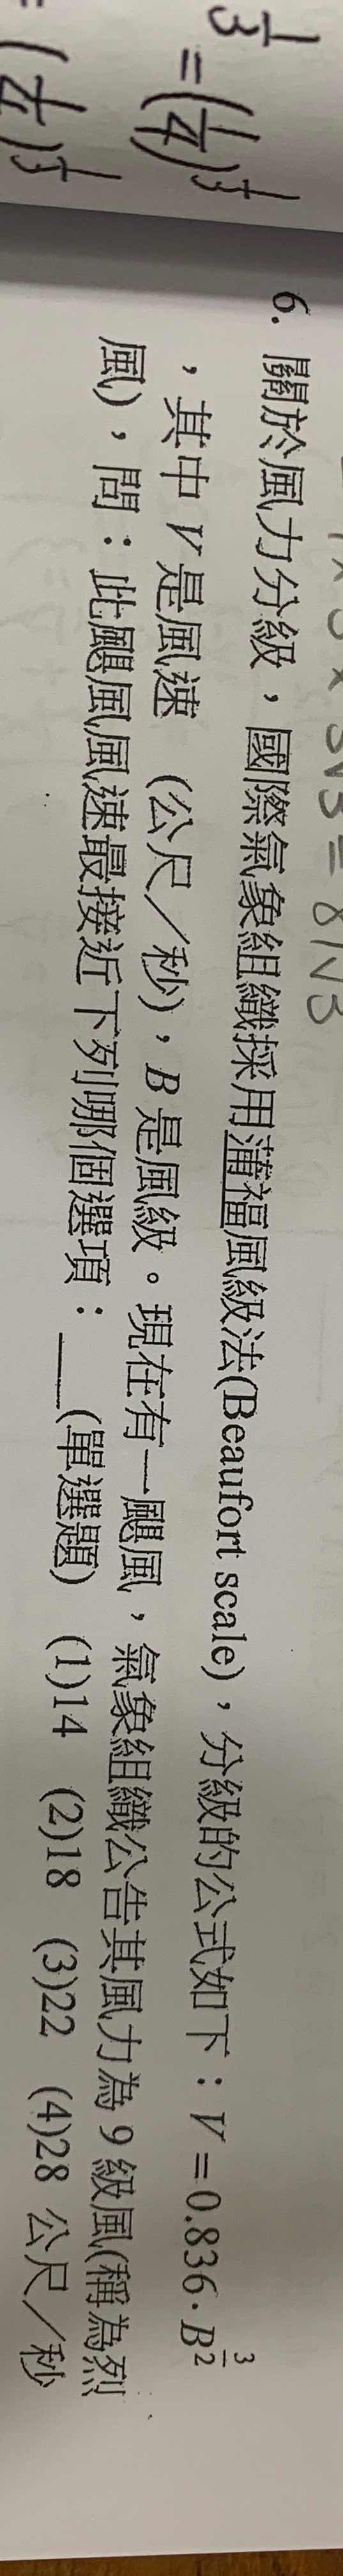 1/3 = (1/4)^
6. 關於風力分級，國際氣象組織採用蒲福風級法(Beaufort scale)，分級的公式如下：V = 0.836·B^(3/2)
，其中 V 是風速 (公尺／秒)，B 是風級。現在有一颶風，氣象組織公告其風力為 9 級風(稱為烈
風)，問：此颶風風速最接近下列哪個選項：___(單選題) (1)14 (2)18 (3)22 (4)28 公尺／秒